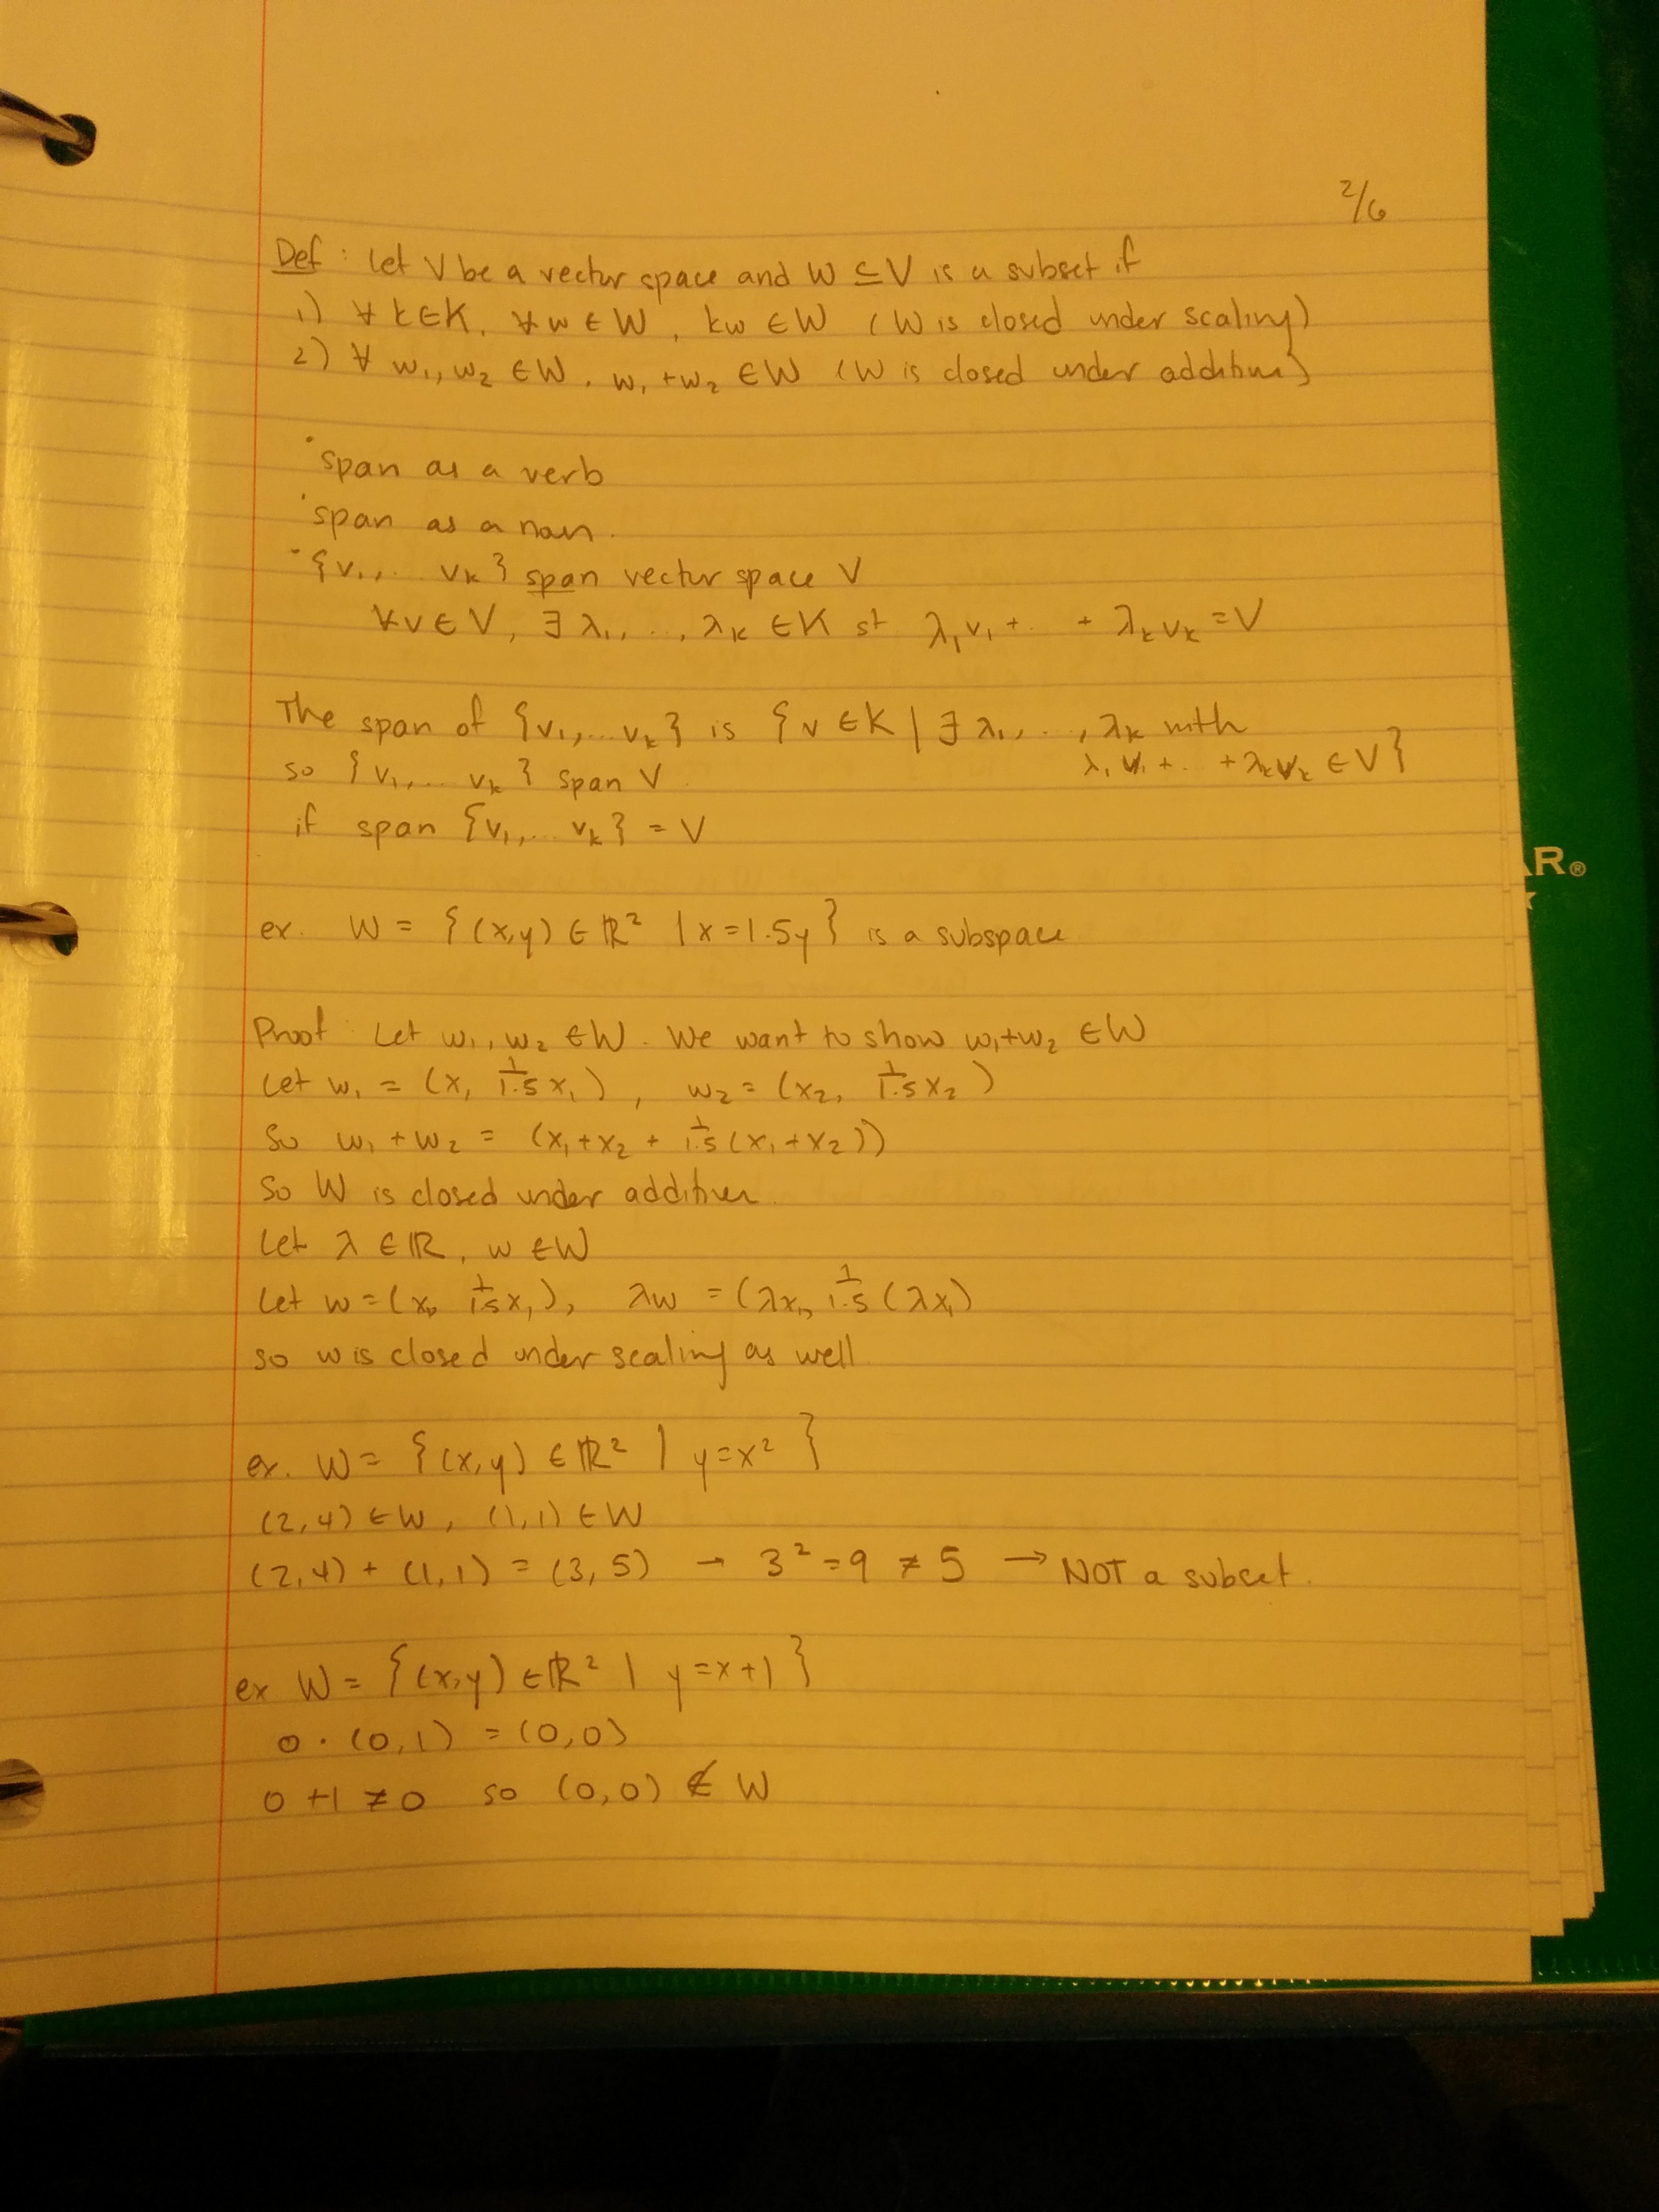 2/6
Def: Let V be a vector space and W ⊆ V is a subset if
1) ∀ k ∈ K, ∀ w ∈ W, kw ∈ W (W is closed under scaling)
2) ∀ w₁, w₂ ∈ W, w₁ + w₂ ∈ W (W is closed under addition)
· span as a verb
· span as a noun.
· {v₁, ... vₖ} span vector space V
∀ v ∈ V, ∃ λ₁, ..., λₖ ∈ K st λ₁v₁ + .. + λₖvₖ = V
The span of {v₁, ... vₖ} is {v ∈ K | ∃ λ₁, ..., λₖ with
λ₁v₁ + ... + λₖvₖ ∈ V}
so {v₁, ... vₖ} span V
if span {v₁, ... vₖ} = V
AR®
ex. W = {(x,y) ∈ ℝ² | x = 1.5y} is a subspace
Proof: Let w₁, w₂ ∈ W. We want to show w₁+w₂ ∈ W
Let w₁ = (x, 1/1.5 x₁), w₂ = (x₂, 1/1.5 x₂)
So w₁ + w₂ = (x₁ + x₂ + 1/1.5 (x₁ + x₂))
So W is closed under addition.
Let λ ∈ ℝ, w ∈ W
Let w = (x₁, 1/1.5 x₁), λw = (λx₁, 1/1.5 (λx₁)
so w is closed under scaling as well
ex. W = {(x,y) ∈ ℝ² | y = x²}
(2,4) ∈ W, (1,1) ∈ W
(2,4) + (1,1) = (3,5) → 3² = 9 ≠ 5 → NOT a subset.
ex W = {(x,y) ∈ ℝ² | y = x+1}
0 · (0,1) = (0,0)
0 + 1 ≠ 0 so (0,0) ∉ W